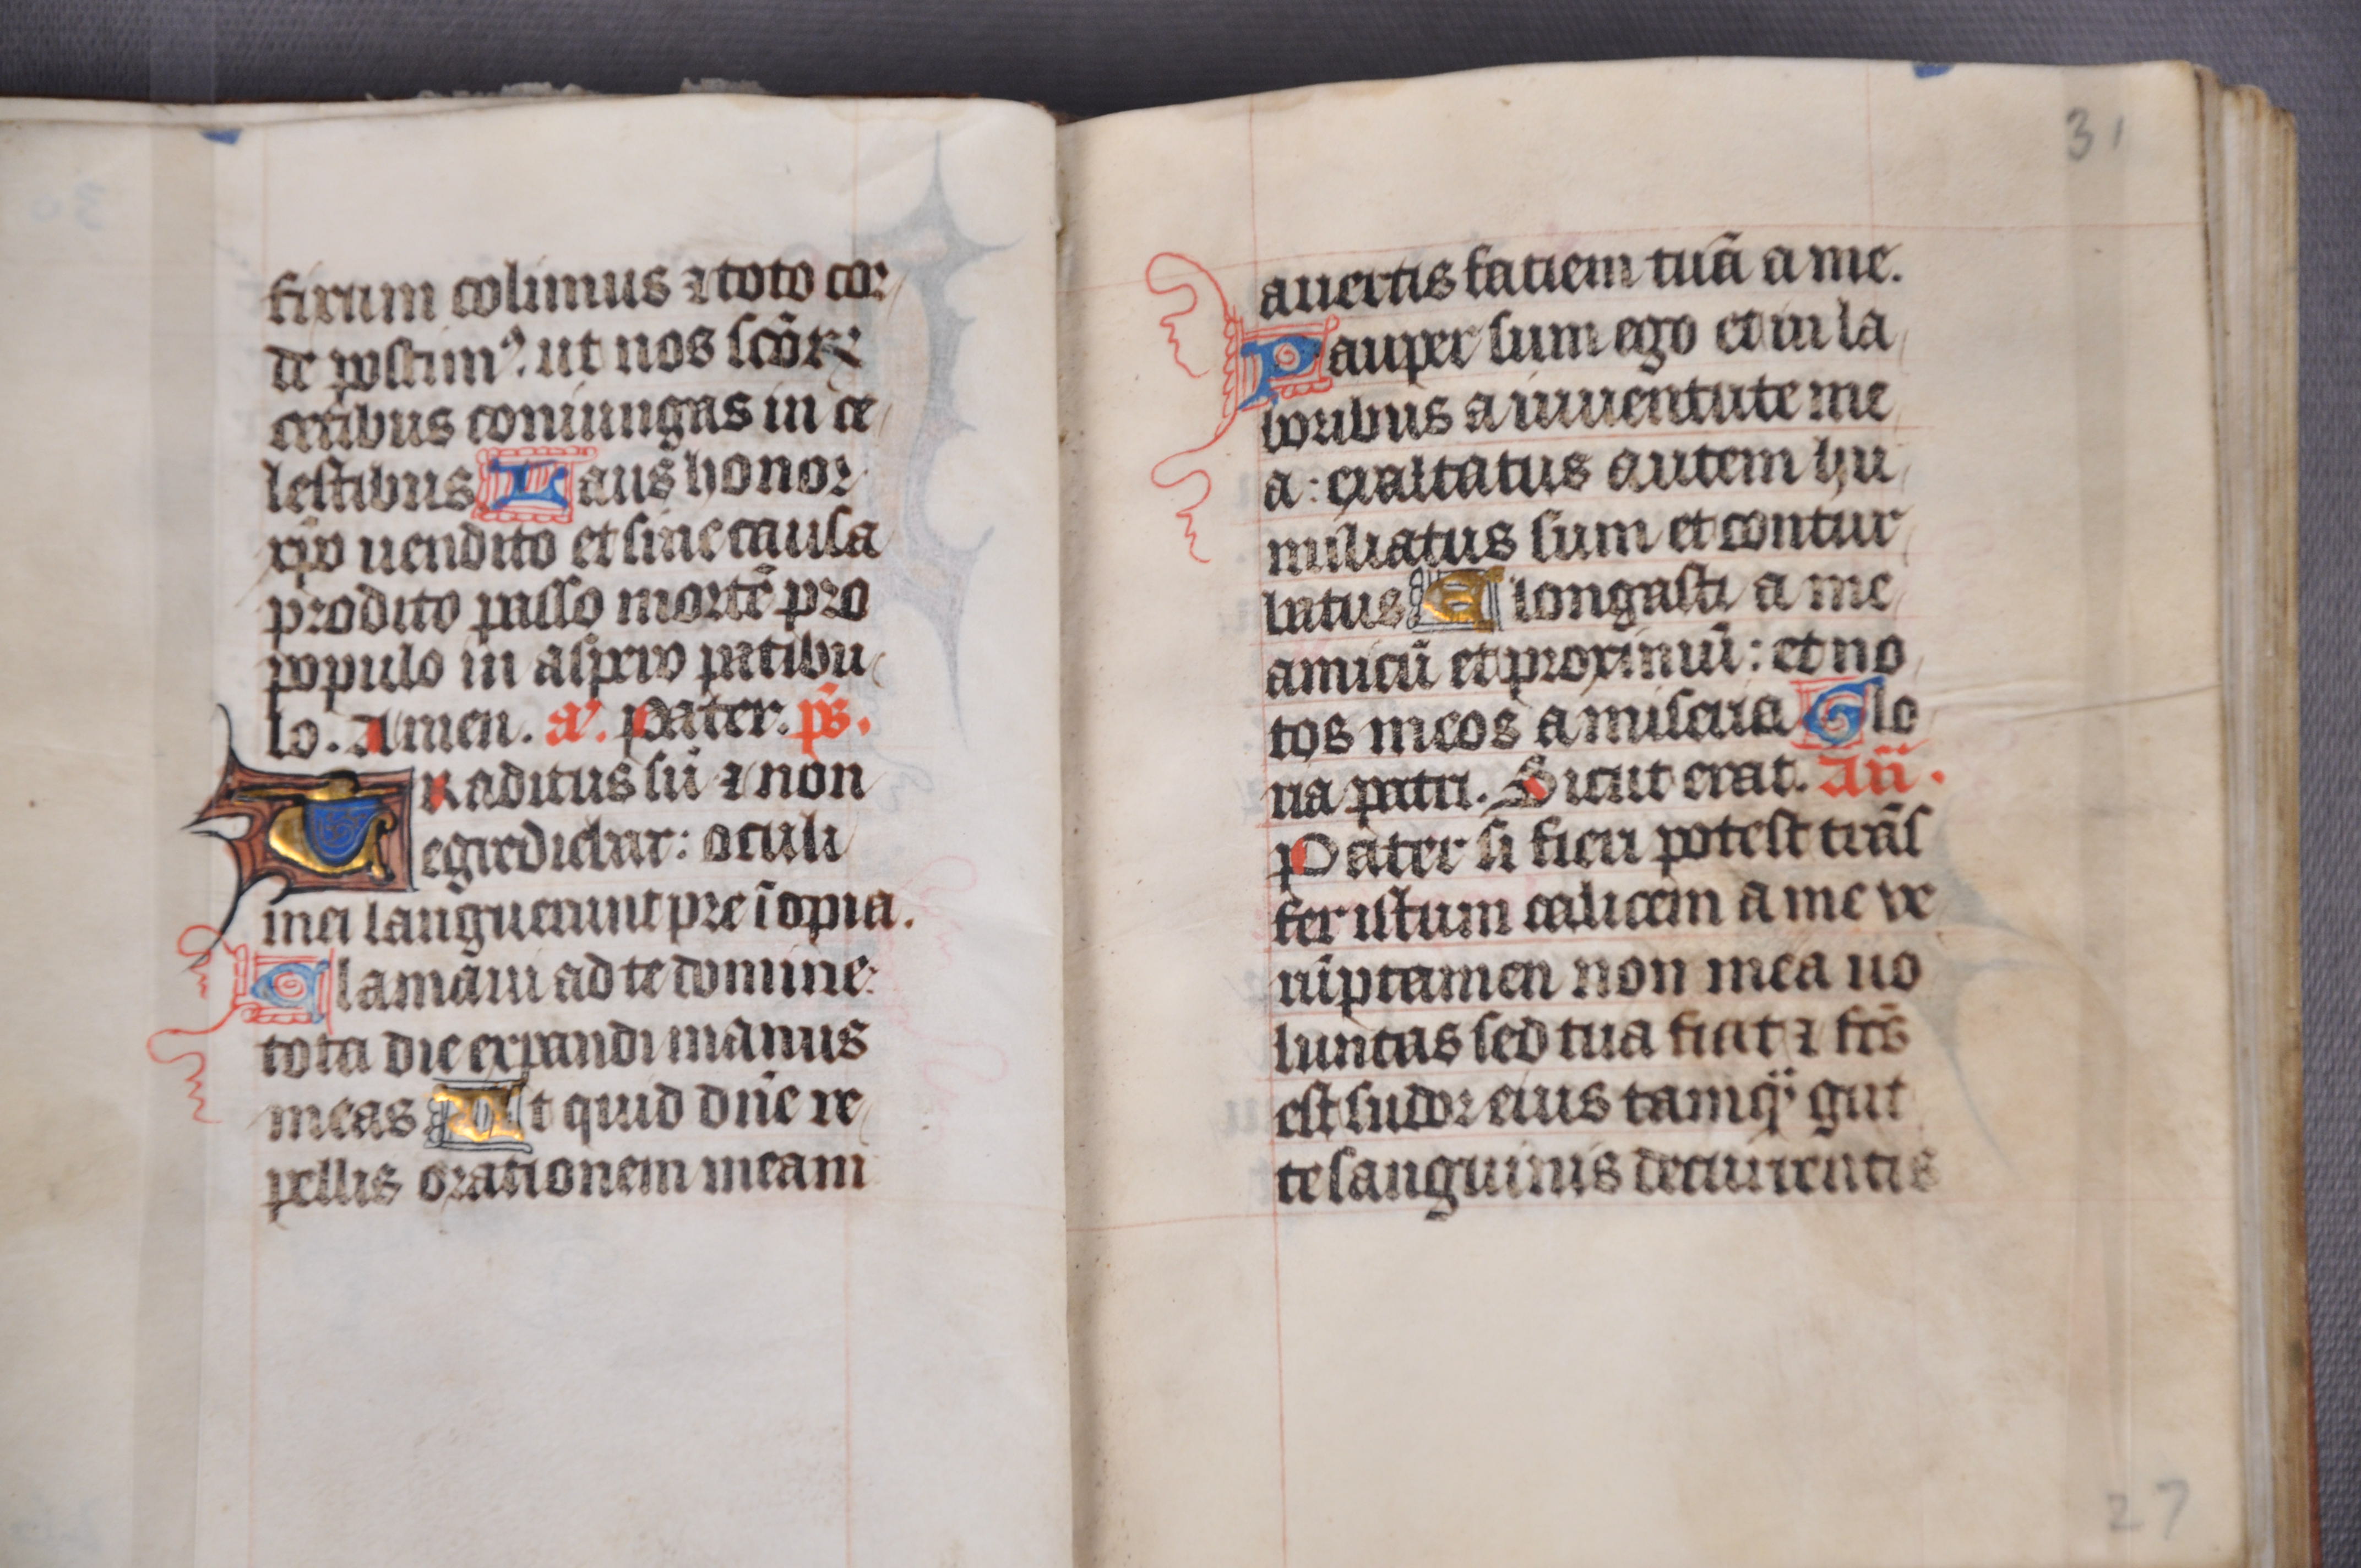 fixum colimus ⁊ toto cor
de poscim⁹. ut nos scõrꝝ
cetibus coniungas in ce
lestibus Laus honor
xp̄o uendito et sine causa
prodito passo mortē pro
populo in aspero patibu
lo. Amen. a᷑. Pater. p̄s.
Traditus sū ⁊ non
egrediebar: oculi
mei languerunt pre īopia.
Clamāui ad te domine
tota die expandi manus
meas Vt quid dn̄e re
pellis orationem meam
31
auertis faciem tuā a me.
Pauper sum ego et in la
boribus a iuuentute me
a: exaltatus autem hu
miliatus sum et contur
batus Elongasti a me
amicū et proximū: et no
tos meos a miseria Glo
ria patri. Sicut erat. Añ.
Pater si fieri potest trās
fer istum calicem a me ve
rūptamen non mea uo
luntas sed tua fiat ⁊ fc̄s
est sudor eius tamq̄ gut
te sanguinis decurrentis
27